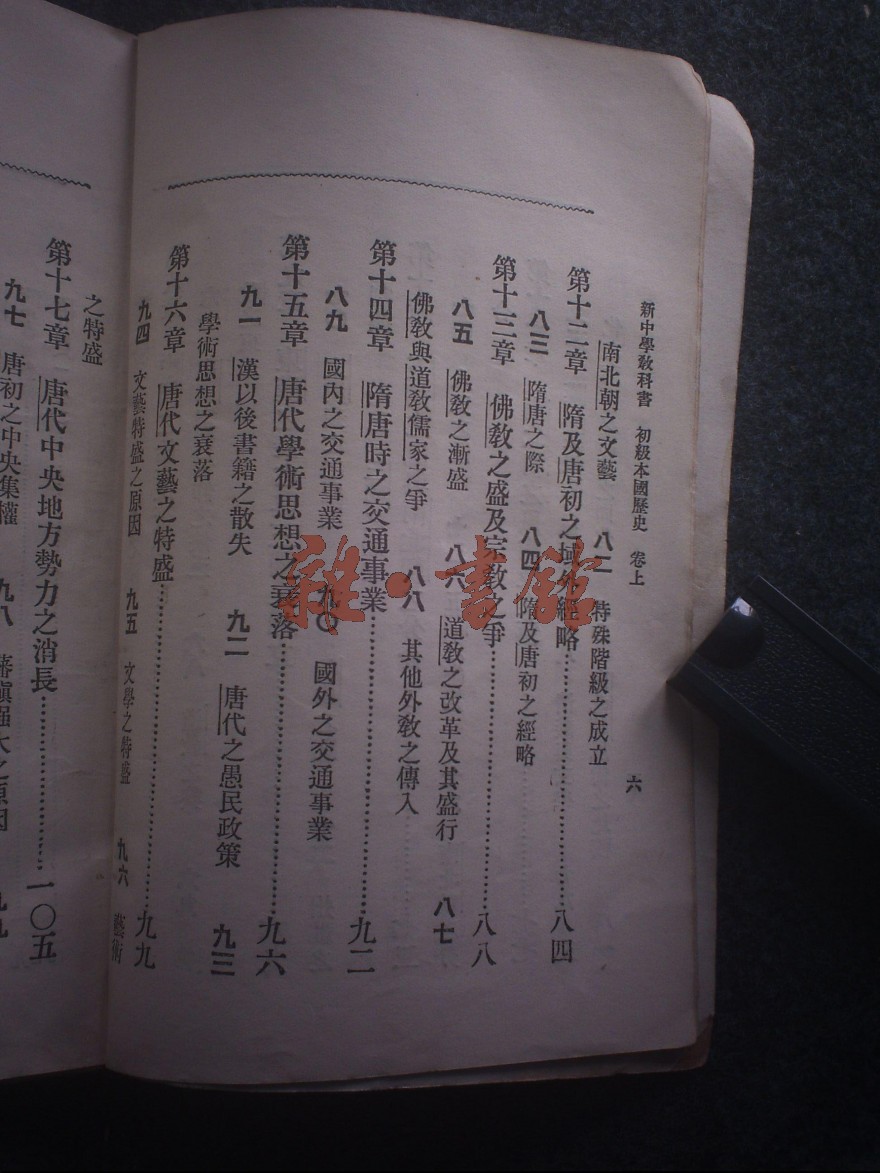 新中學教科書 初級本國歷史 卷上 六
南北朝之文藝 八二 特殊階級之成立
第十二章 隋及唐初之域外經略……八四
八三 隋唐之際 八四 隋及唐初之經略
第十三章 佛教之盛及宗教之爭……八八
八五 佛教之漸盛 八六 道教之改革及其盛行 八七
佛教與道教儒家之爭 八八 其他外教之傳入
第十四章 隋唐時之交通事業……九二
八九 國內之交通事業 九〇 國外之交通事業
第十五章 唐代學術思想之衰落……九六
九一 漢以後書籍之散失 九二 唐代之愚民政策 九三
學術思想之衰落
第十六章 唐代文藝之特盛……九九
九四 文藝特盛之原因 九五 文學之特盛 九六 藝術
之特盛
第十七章 唐代中央地方勢力之消長……一〇五
九七 唐初之中央集權 九八 藩鎮强大之原因 九九
雜·書館